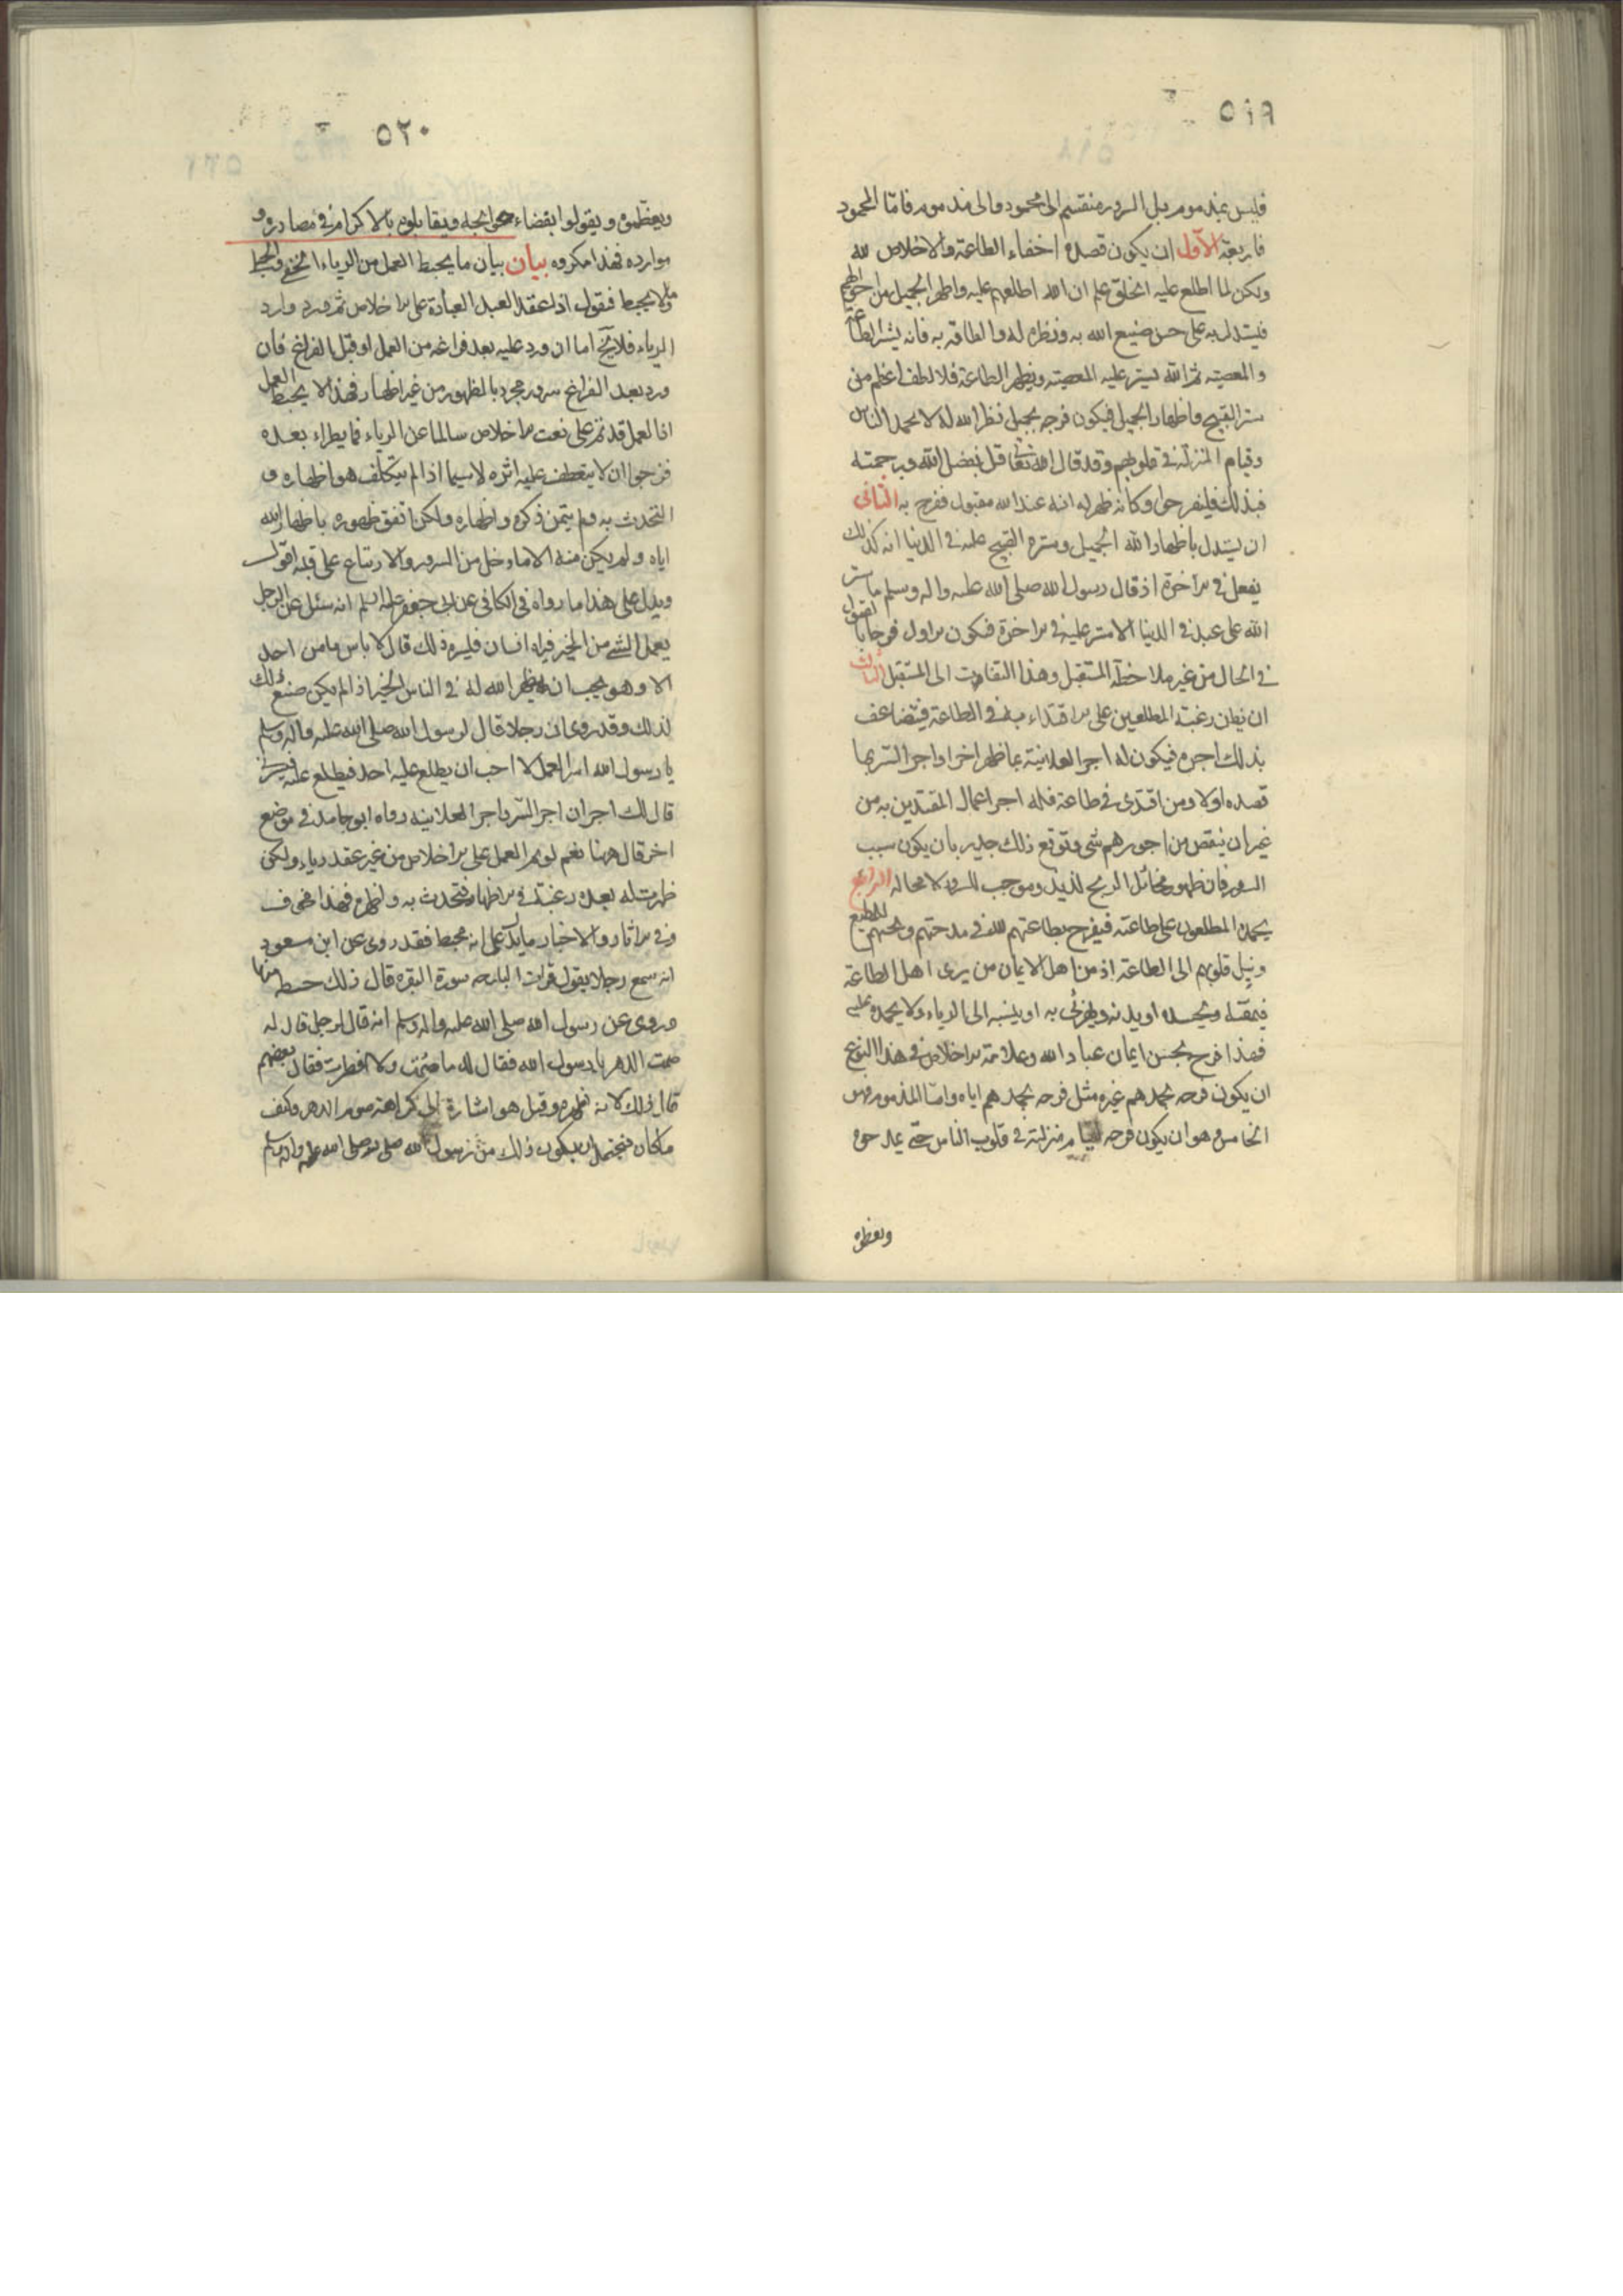 ٥١٩
فليس بمذموم بل السرور منقسم الى محمود والى مذموم فاما المحمود
فاربعة الأول ان يكون قصده اخفاء الطاعة والاخلاص لله
ولكن لما اطلع عليه الخلق علم ان الله اطلعهم عليه واظهر الجميل من احواله
فيستدل به على حسن صنيع الله به ونظره له والطافه به فانه يستر الطاعة
والمعصية ثم الله يستر عليه المعصية ويظهر الطاعة فلا لطف اعظم من
ستر القبيح واظهار الجميل فيكون فرحه بجميل نظر الله له لا بحمد الناس
وقيام المنزلة في قلوبهم وقد قال الله تعالى قل بفضل الله وبرحمته
فبذلك فليفرحوا وكانه ظهر له انه عند الله مقبول ففرح به الثاني
ان يستدل باظهار الله الجميل وستره القبيح عليه في الدنيا انه كذلك
يفعل في الاخرة اذ قال رسول الله صلى الله عليه واله وسلم ما ستر
الله على عبد في الدنيا الا ستر عليه في الاخرة فيكون الاول فرحا بالقبول
في الحال من غير ملاحظة المستقبل وهذا التفات الى المستقبل الثالث
ان يظن رغبة المطلعين على الاقتداء به في الطاعة فيتضاعف
بذلك اجره فيكون له اجر العلانية بما ظهر اخرا واجر السر بما
قصده اولا ومن اقتدى في طاعة فله اجر اعمال المقتدين به من
غير ان ينقص من اجورهم شئ وتوقع ذلك جدير بان يكون سبب
السرور فان ظهور مخائل الربح لذيذ وموجب للسرور لا محالة الرابع
يحمده المطلعون على طاعته فيفرح بطاعتهم لله في مدحتهم وبحبهم للمطيع
وبميل قلوبهم الى الطاعة اذ من اهل الايمان من يرى اهل الطاعة
فيمقته ويحسده او يذمه ويهزئ به او ينسبه الى الرياء ولا يحمده عليه
فهذا فرح بحسن ايمان عباد الله وعلامة الاخلاص في هذا النوع
ان يكون فرحه بحمدهم غيره مثل فرحه بحمدهم اياه واما المذموم فهو
الخامس وهو ان يكون فرحه لقيام منزلته في قلوب الناس حتى يمدحوه
ويعظموه
٥٢٠
ويعظموه ويقوموا بقضاء حوائجه ويقابلوه بالاكرام في مصادره و
موارده فهذا مكروه بيان بيان ما يحبط العمل من الرياء الخفي والجلي
وما لا يحبط فنقول اذا عقد العبد العبادة على الاخلاص ثم ورد وارد
الرياء فلا يخ اما ان ورد عليه بعد فراغه من العمل او قبل الفراغ فان
ورد بعد الفراغ سرور مجرد بالظهور من غير اظهار فهذا لا يحبط العمل
اذ العمل قد تم على نعت الاخلاص سالما عن الرياء فما يطراء بعده
فنرجوا ان لا ينعطف عليه اثره لا سيما اذا لم يتكلف هو اظهاره و
التحدث به ولم يتمن ذكره واظهاره ولكن اتفق ظهوره باظهار الله
اياه ولم يكن منه الا ما دخل من السرور والارتياح على قلبه اقول
ويدل على هذا ما رواه في الكافي عن ابي جعفر عليه السلم انه سئل عن الرجل
يعمل الشئ من الخير فيراه انسان فيسره ذلك قال لا باس ما من احد
الا وهو يحب ان يظهر الله له في الناس الخير اذا لم يكن صنع ذلك
لذلك وقد روى ان رجلا قال لرسول الله صلى الله عليه واله وسلم
يا رسول الله اسر العمل لا احب ان يطلع عليه احد فيطلع عليه فيسرني
قال لك اجران اجر السر واجر العلانيه رواه ابو حامد في موضع
اخر قال هنا نعم لو تم العمل على الاخلاص من غير عقد رياء ولكن
ظهرت له بعده رغبة في الاظهار فتحدث به واظهره فهذا مخوف
وفي الاثار والاخبار ما يدل على انه محبط فقد روى عن ابن مسعود
انه سمع رجلا يقول قرات البارحه سورة البقرة قال ذلك حظه منها
وروى عن رسول الله صلى الله عليه واله وسلم انه قال لرجل قال له
صمت الدهر يا رسول الله فقال له ما صمت ولا افطرت فقال بعضهم
قال ذلك لانه اظهره وقيل هو اشارة الى كراهة صوم الدهر وكيف
ما كان فيحتمل ان يكون ذلك من رسول الله صلى الله عليه واله وسلم